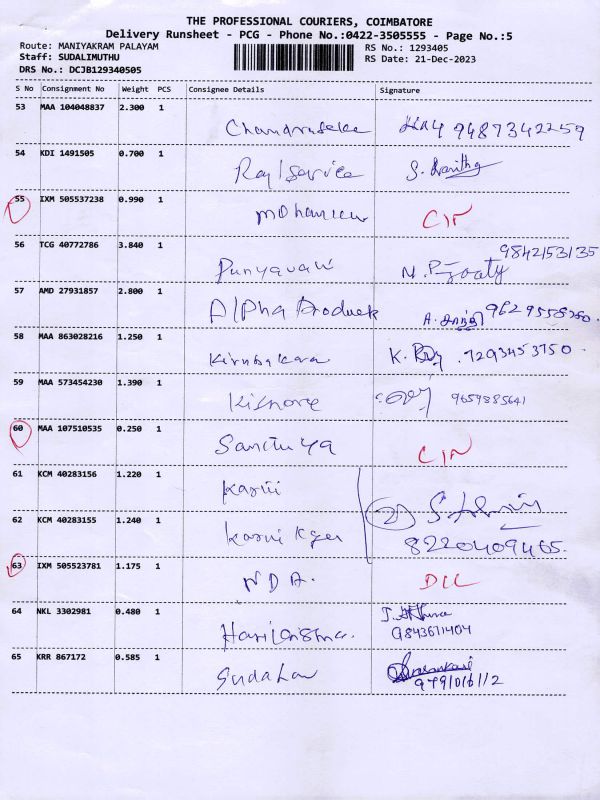 THE PROFESSIONAL COURIERS, COIMBATORE
Delivery Runsheet - PCG - Phone No.:0422-3505555 - Page No.:5
Route: MANIYAKRAM PALAYAM RS No.: 1293405
Staff: SUDALIMUTHU RS Date: 21-Dec-2023
DRS No.: DCJB129340505
S No Consignment No Weight PCS Consignee Details Signature
53 MAA 104048837 2.300 1 9487342259
54 KDI 1491505 0.700 1 Raj Service
55 IXM 505537238 0.990 1
9842153135
56 TCG 40772786 3.840 1
57 AMD 27931857 2.800 1 Alpha Product
58 MAA 863028216 1.250 1 Kirubakara 7293453750
59 MAA 573454230 1.390 1 Kishore 9659885641
60 MAA 107510535 0.250 1
61 KCM 40283156 1.220 1
62 KCM 40283155 1.240 1 8220409465
63 IXM 505523781 1.175 1 NDA.
64 NKL 3302981 0.480 1
9843671404
65 KRR 867172 0.585 1
9791016112